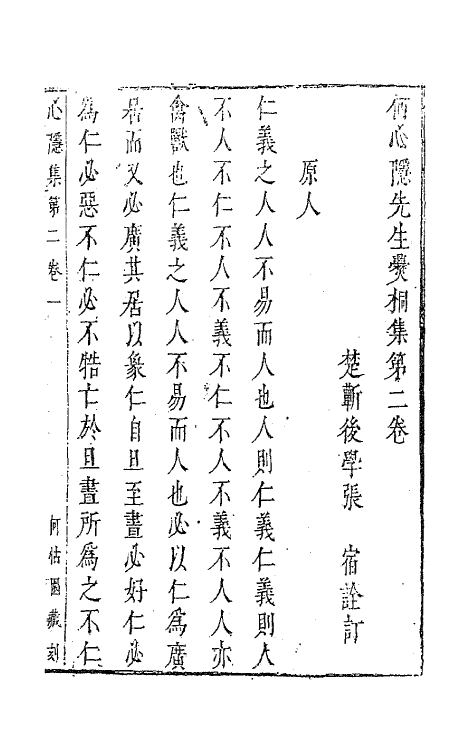 何心隱先生爨桐集第二卷
楚蘄後學張　宿詮訂
原人
仁義之人人不易而人也人則仁義仁義則人
不人不仁不人不義不仁不人不義不人人亦
禽獸也仁義之人人不易而人也必以仁爲廣
居而又必廣其居以象仁自旦至晝必好仁必
爲仁必惡不仁必不牿亡於旦晝所爲之不仁
心隱集第二卷一
何 園藏刻